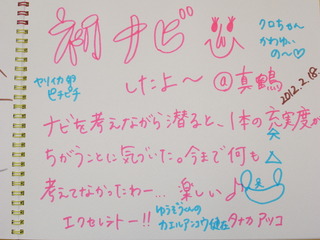 初ナビ
クロちゃん
かわゆい
の〜♡
ヤリイカの卵
ピチピチ
したよ〜 @真鶴
2012.2.18.
ナビを考えながら潜ると、1本の充実度が
ちがうことに気づいた。今まで何も
考えてなかったわー… 楽しい♪
エクセレントー!!
ゆうぞうくんの
カエルアンコウ健在
タナカ アツコ